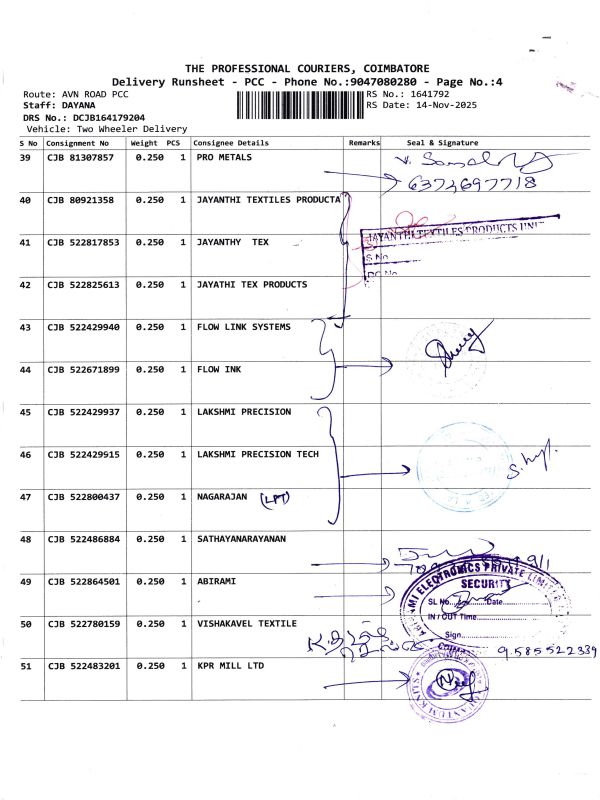 THE PROFESSIONAL COURIERS, COIMBATORE
Delivery Runsheet - PCC - Phone No.:9047080280 - Page No.:4
Route: AVN ROAD PCC
RS No.: 1641792
Staff: DAYANA
RS Date: 14-Nov-2025
DRS No.: DCJB164179204
Vehicle: Two Wheeler Delivery
S No Consignment No Weight PCS Consignee Details Remarks Seal & Signature
39 CJB 81307857 0.250 1 PRO METALS
6374697718
40 CJB 80921358 0.250 1 JAYANTHI TEXTILES PRODUCTA
JAYANTHI TEXTILES PRODUCTS UNIT
41 CJB 522817853 0.250 1 JAYANTHY TEX
S No
DC No
42 CJB 522825613 0.250 1 JAYATHI TEX PRODUCTS
43 CJB 522429940 0.250 1 FLOW LINK SYSTEMS
44 CJB 522671899 0.250 1 FLOW INK
45 CJB 522429937 0.250 1 LAKSHMI PRECISION
46 CJB 522429915 0.250 1 LAKSHMI PRECISION TECH
47 CJB 522800437 0.250 1 NAGARAJAN (LPT)
48 CJB 522486884 0.250 1 SATHAYANARAYANAN
49 CJB 522864501 0.250 1 ABIRAMI
ELECTRONICS PRIVATE LIMITED
SECURITY
SL No. Date
IN / OUT Time
Sign
50 CJB 522780159 0.250 1 VISHAKAVEL TEXTILE
9585522339
51 CJB 522483201 0.250 1 KPR MILL LTD
QUANTUM KNITS